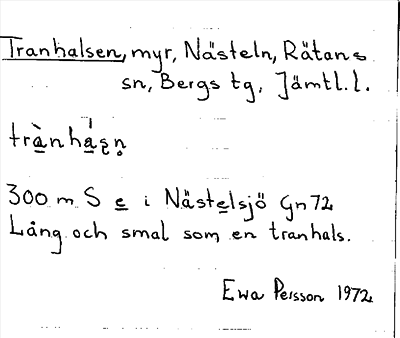 Tranhalsen, myr, Nästeln, Rätans
sn, Bergs tg, Jämtl.l.
300 m S e i Nästelsjö Gn72
Lång och smal som en tranhals.
Ewa Persson 1972